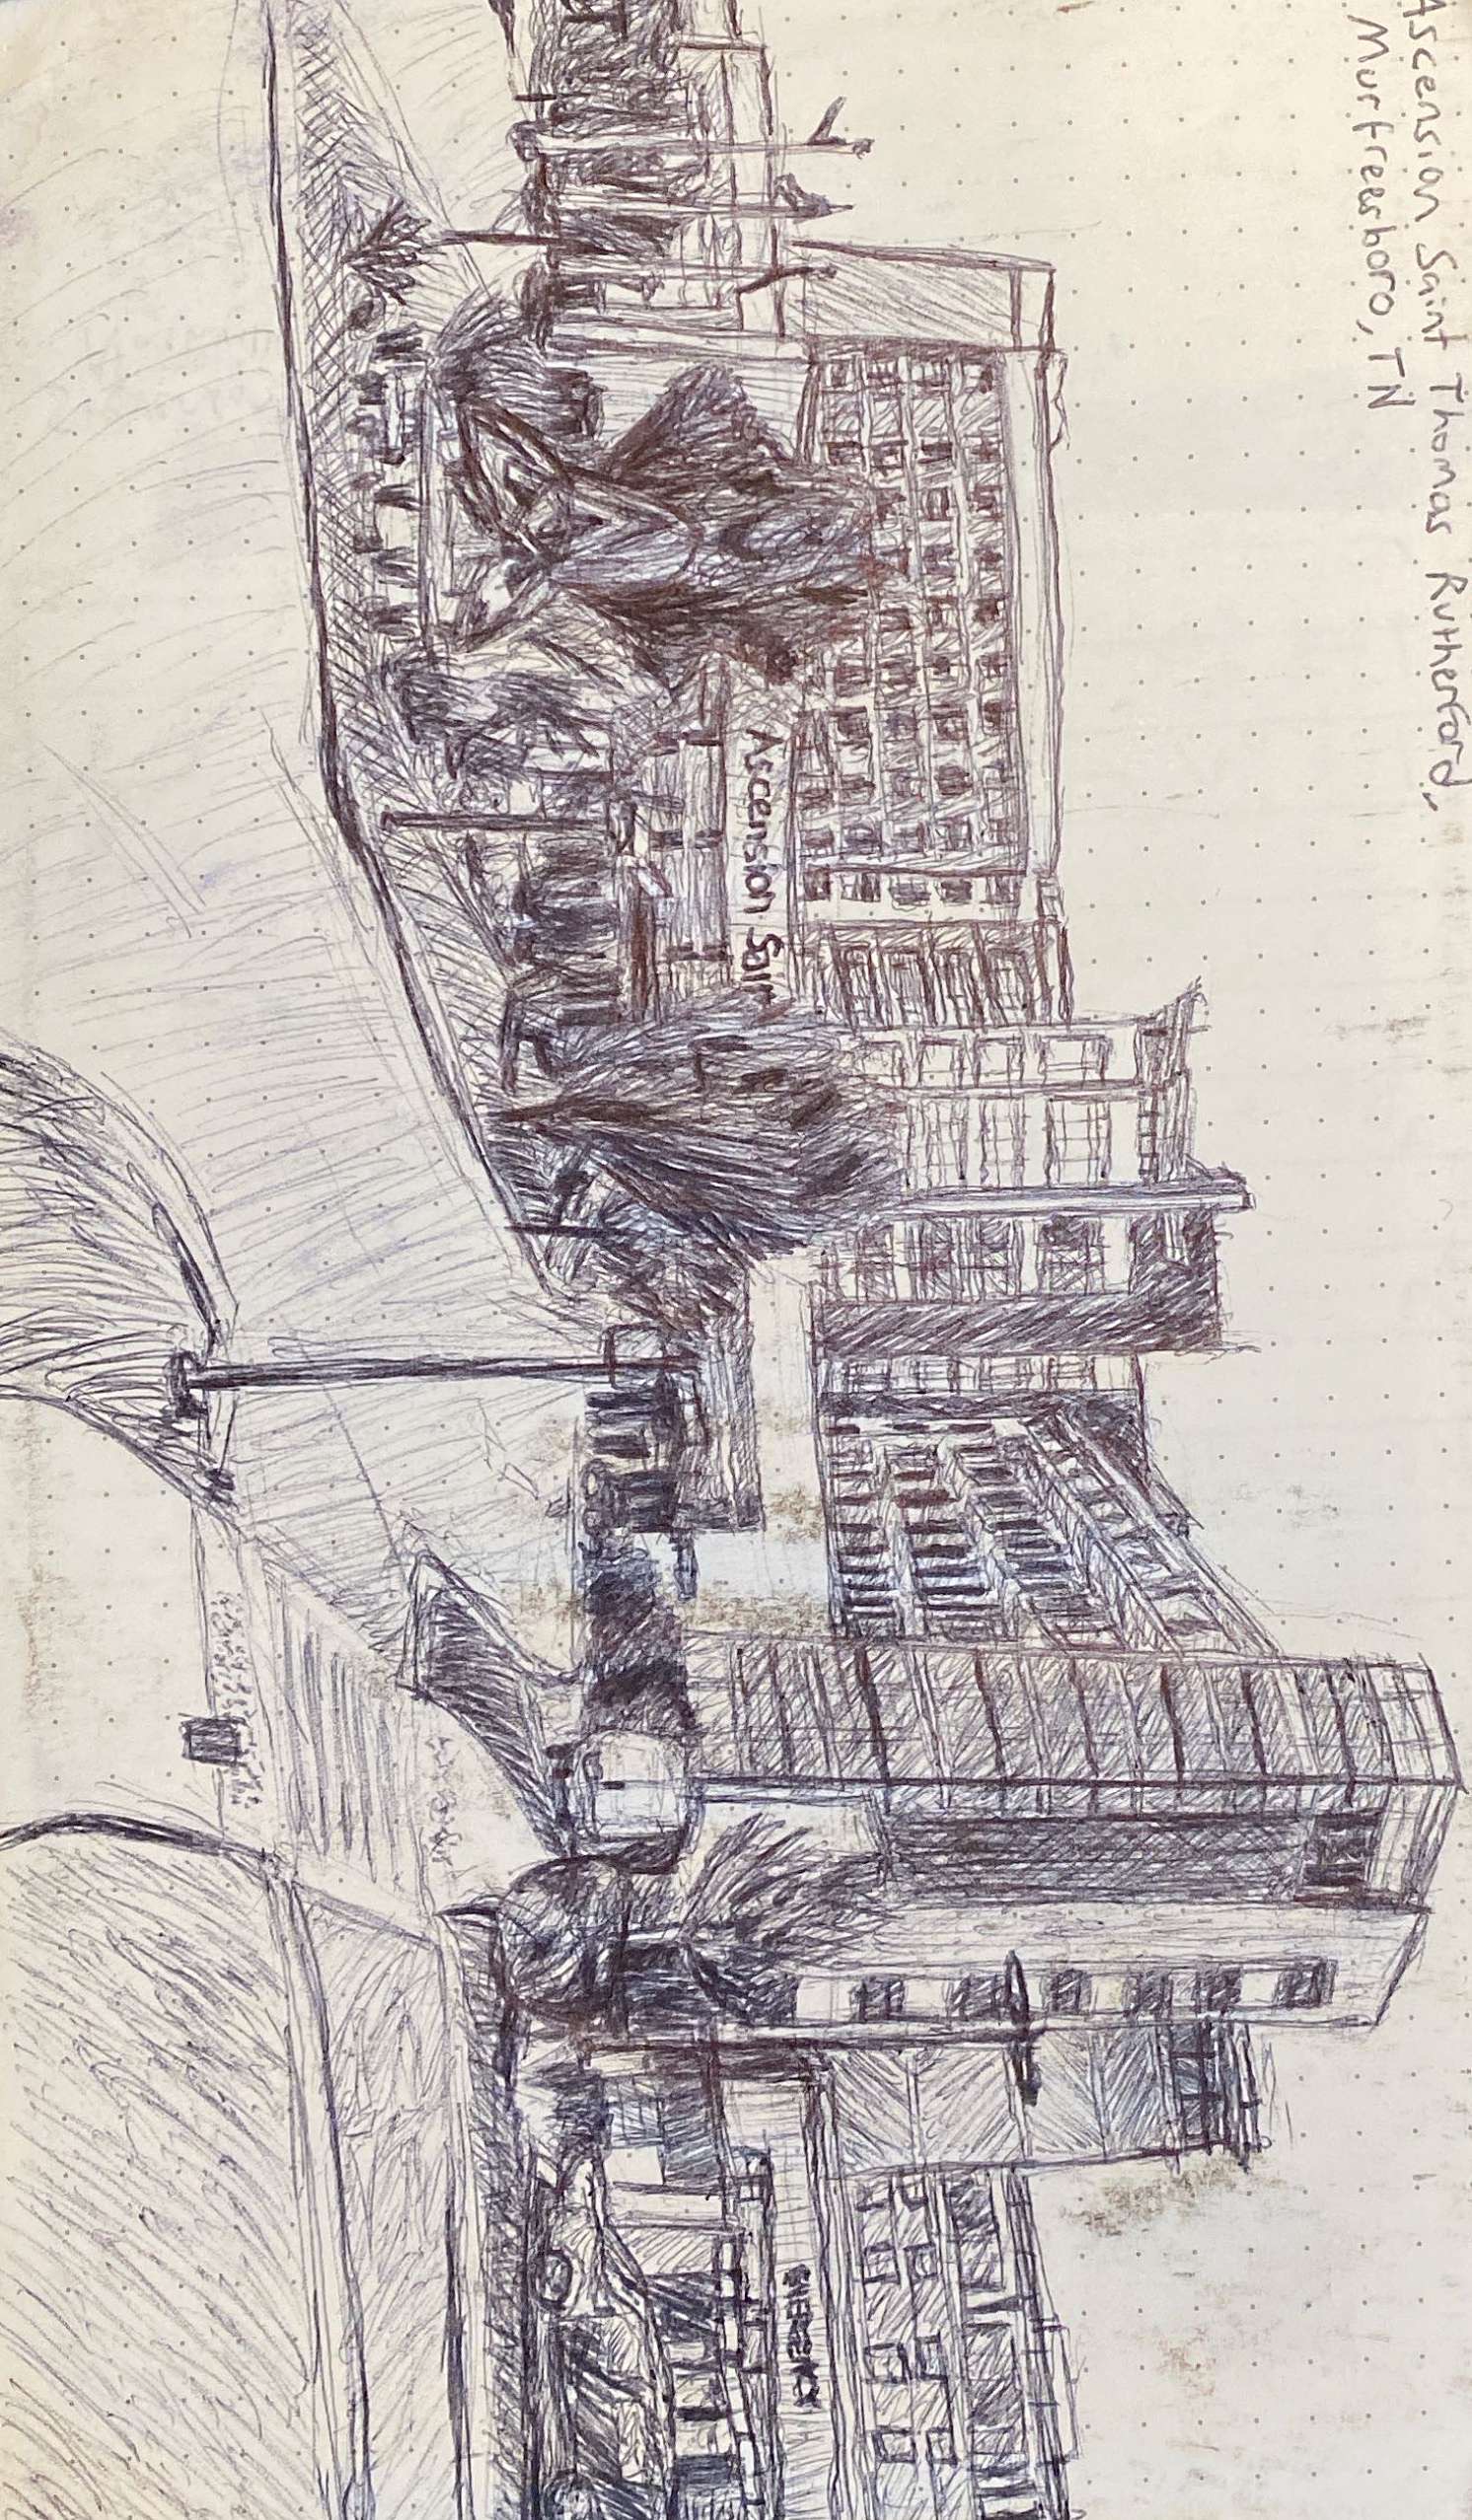 Ascension Saint Thomas Rutherford,
Murfreesboro, TN
Ascension Sain